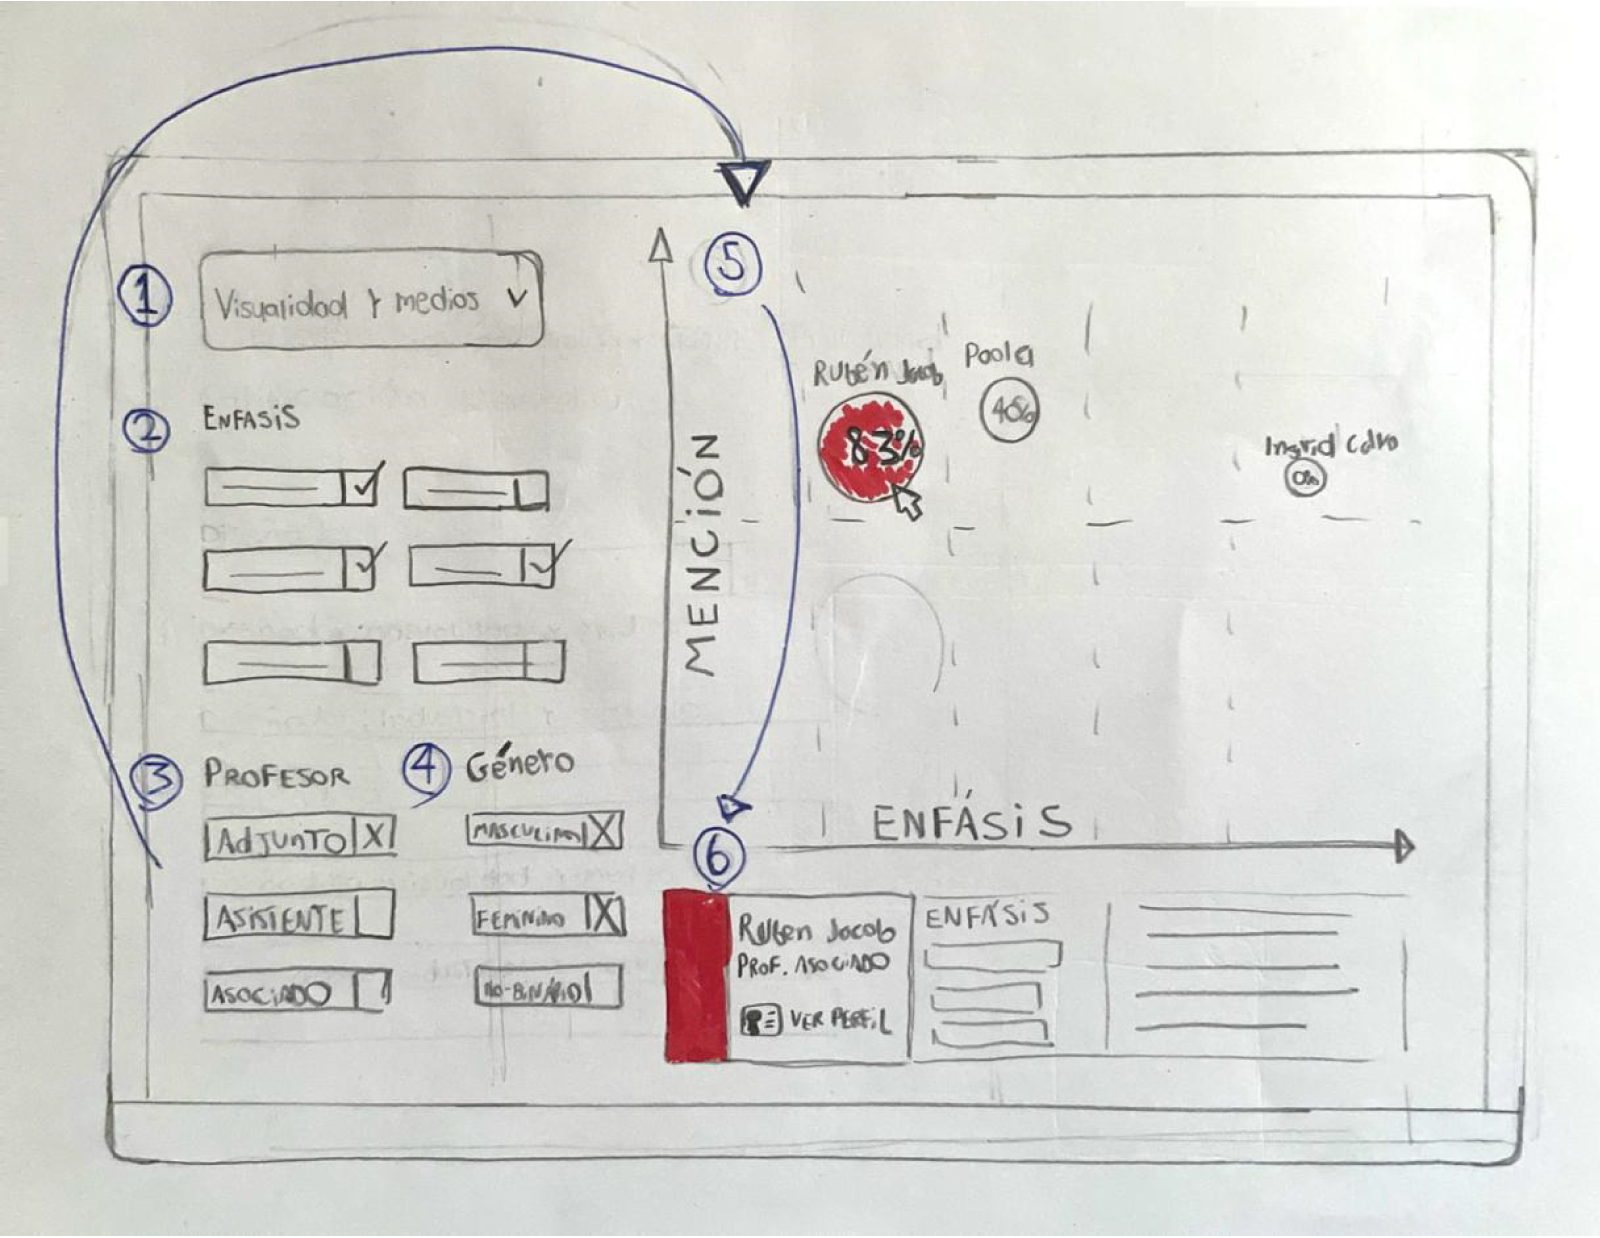 1
Visualidad y medios
2
ENFASIS
3
PROFESOR
ADJUNTO X
ASISTENTE
ASOCIADO
4
Género
MASCULINO X
FEMININO X
NO-BINARIO
5
MENCIÓN
ENFÁSIS
Rubén Jacob
83%
Paola
40%
Ingrid Calvo
0%
6
Ruben Jacob
PROF. ASOCIADO
VER PERFIL
ENFÁSIS